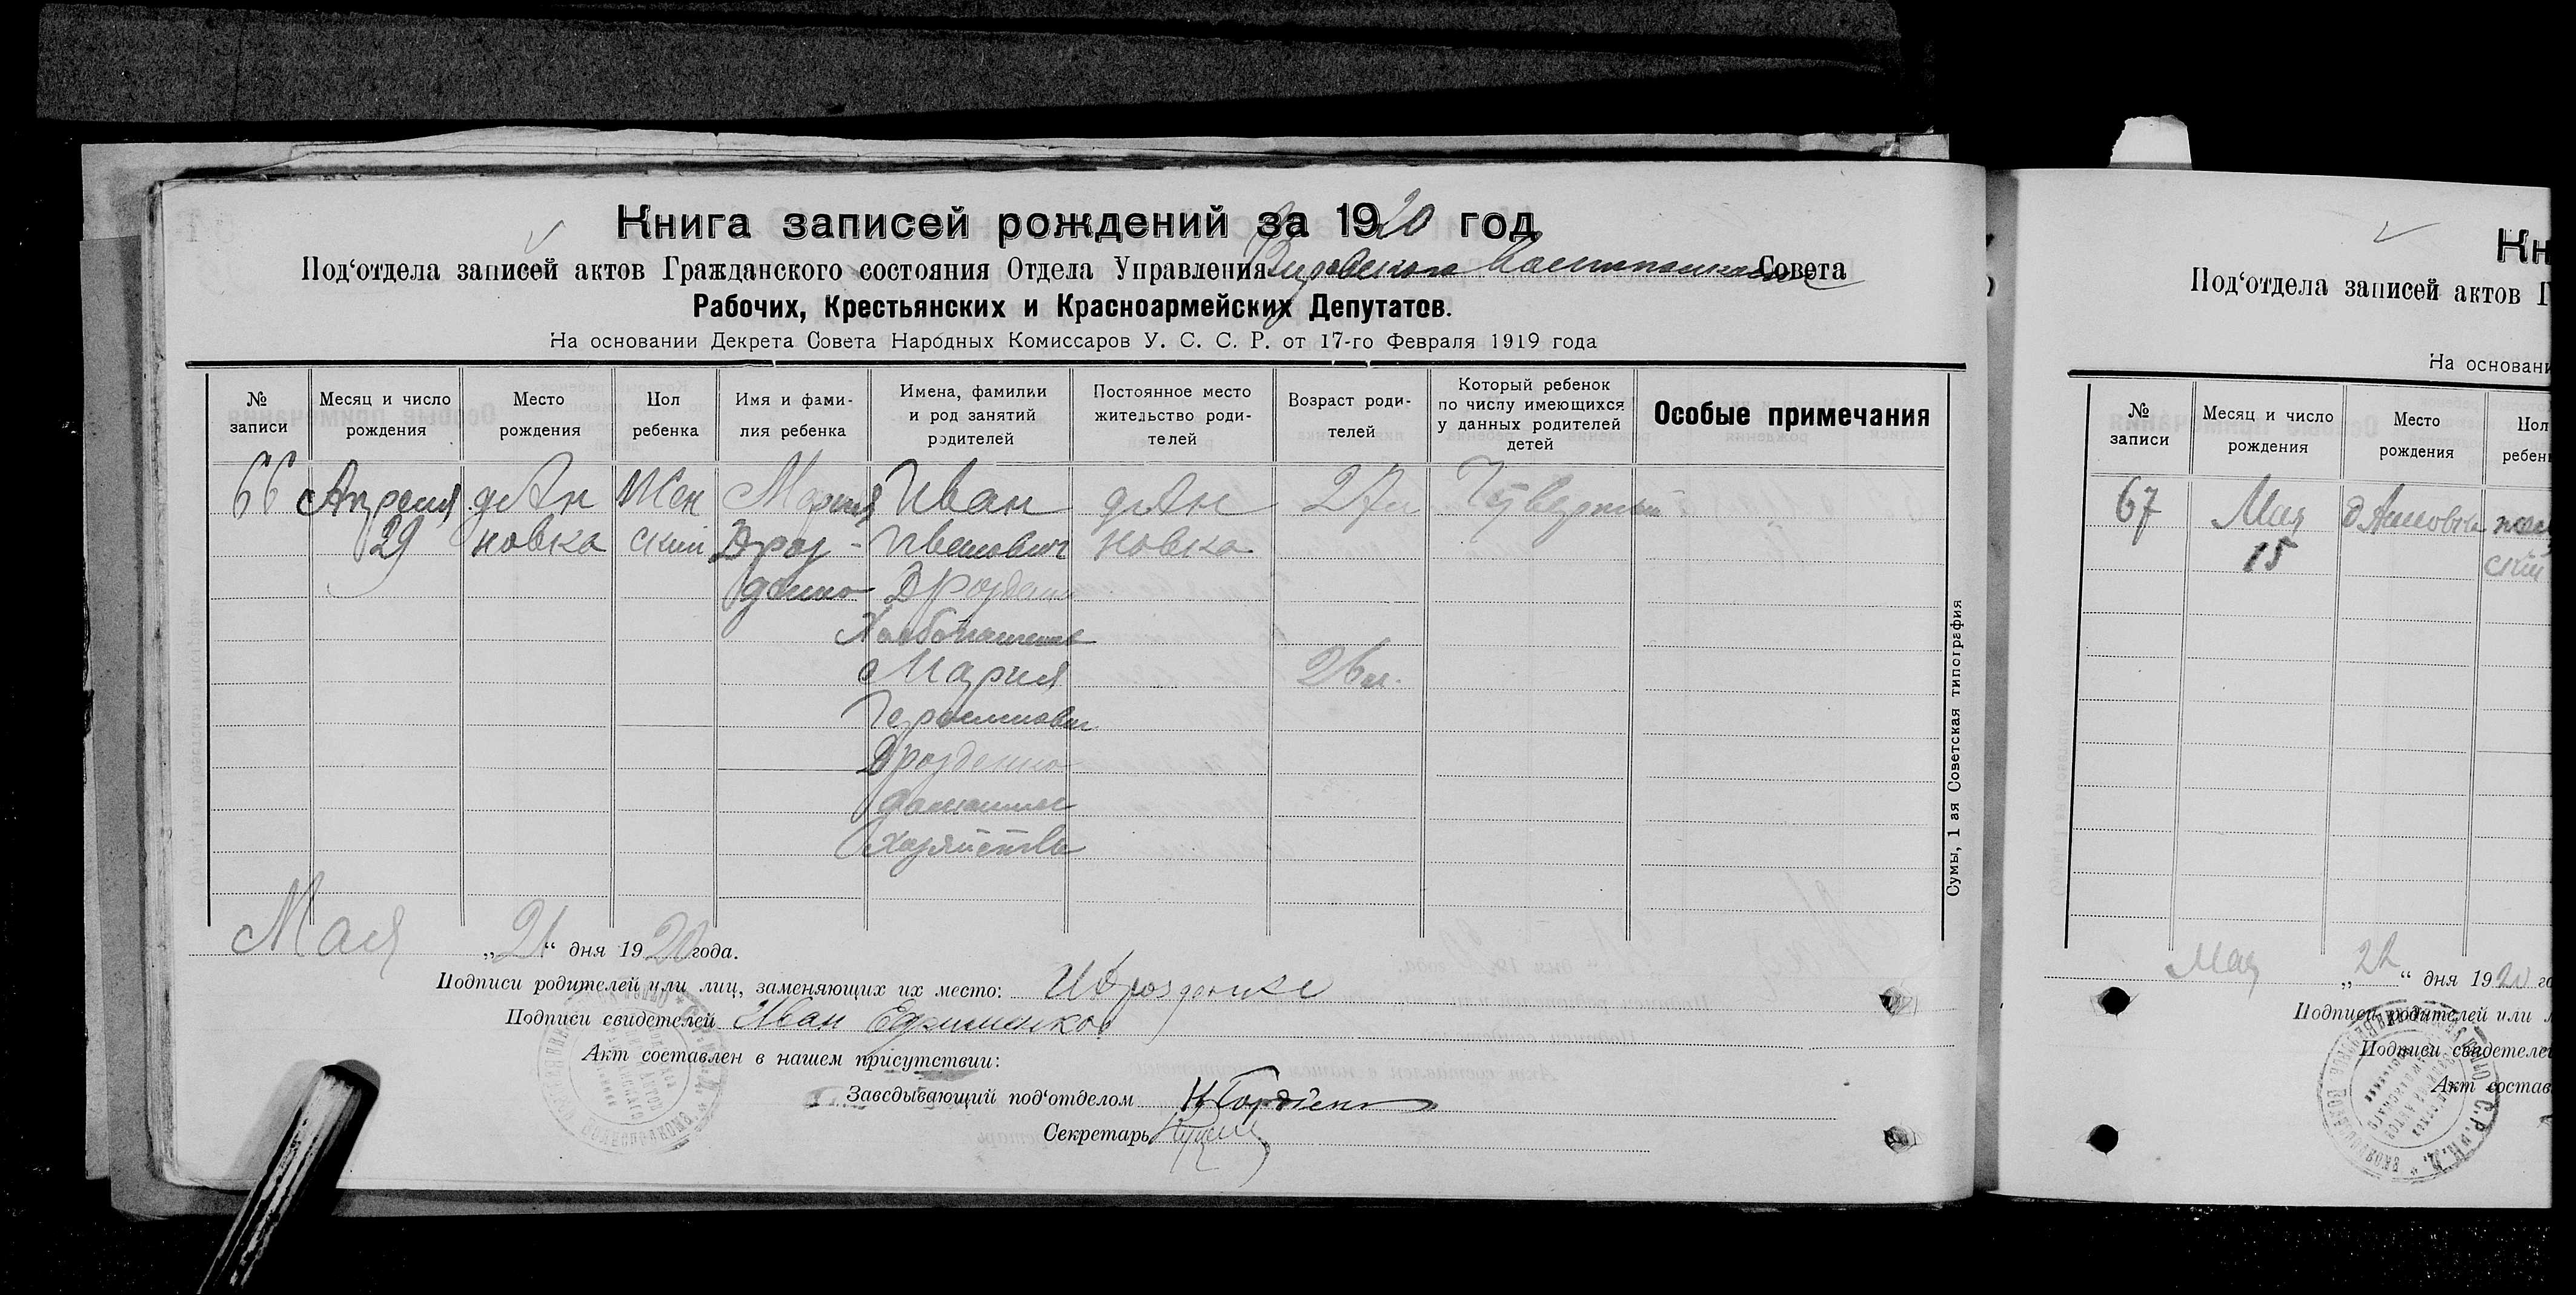 Книга записей рождений за 1920 год
Под‘отдела записей актов Гражданского состояния Отдела Управления Совета
Рабочих, Крестьянских и Красноармейских Депутатов.
На основании Декрета Совета Народных Комиссаров У. С. С. Р. от 17-го Февраля 1919 года
№ записи
Месяц и число рождения
Место рождения
Пол ребенка
Имя и фами-
лия ребенка
Имена, фамилии
и род занятий
родителей
Постоянное место
жительство роди-
телей
Возраст роди-
телей
Который ребенок
по числу имеющихся
у данных родителей
детей
Особые примечания
66
Апреля
29
д Ан
новка
Жен
ский
Мария
Дроз-
денко
Иван
Иванович
Дрозденко
Хлебопашество
Мария
Герасимовна
Дрозденко
домашнее
хозяйство
д Ан
новка
27 л
26 л.
Четвертый
Сумы, 1 ая Советская типография
Мая „21“ дня 1920 года.
Подписи родителей или лиц, заменяющих их место: И Дрозденко
Подписи свидетелей Иван
Акт составлен в нашем присутствии:
Заведывающий под‘отделом Н Гордиенко
Секретарь
Кн
Под‘отдела записей актов Г
На основани
№
записи
Месяц и число
рождения
Место
рождения
Пол
ребен
67
Мая
15
д Анновка
жен
ский
Мая „22“ дня 1920 го
Подписи родителей или л
Подписи свидетелей
Акт состав